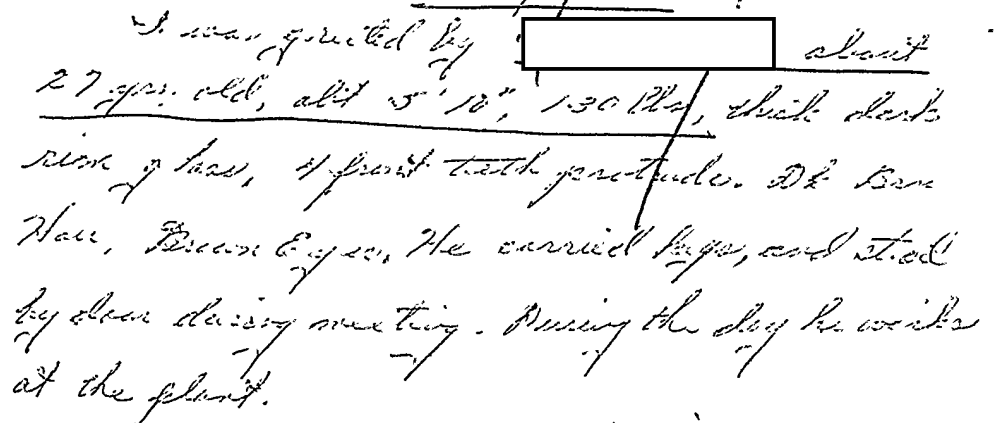 I was greeted by about
27 yrs. old, abt 5' 10", 130 lbs, thick dark
rim glass, 4 front teeth protrude. Dk Brn
Hair, Brown Eyes, He carried keys, and stood
by door during meeting. During the day he works
at the plant.